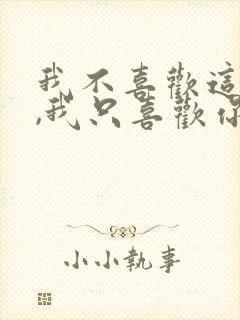 我不喜歡這
,我只喜歡你
小小執事